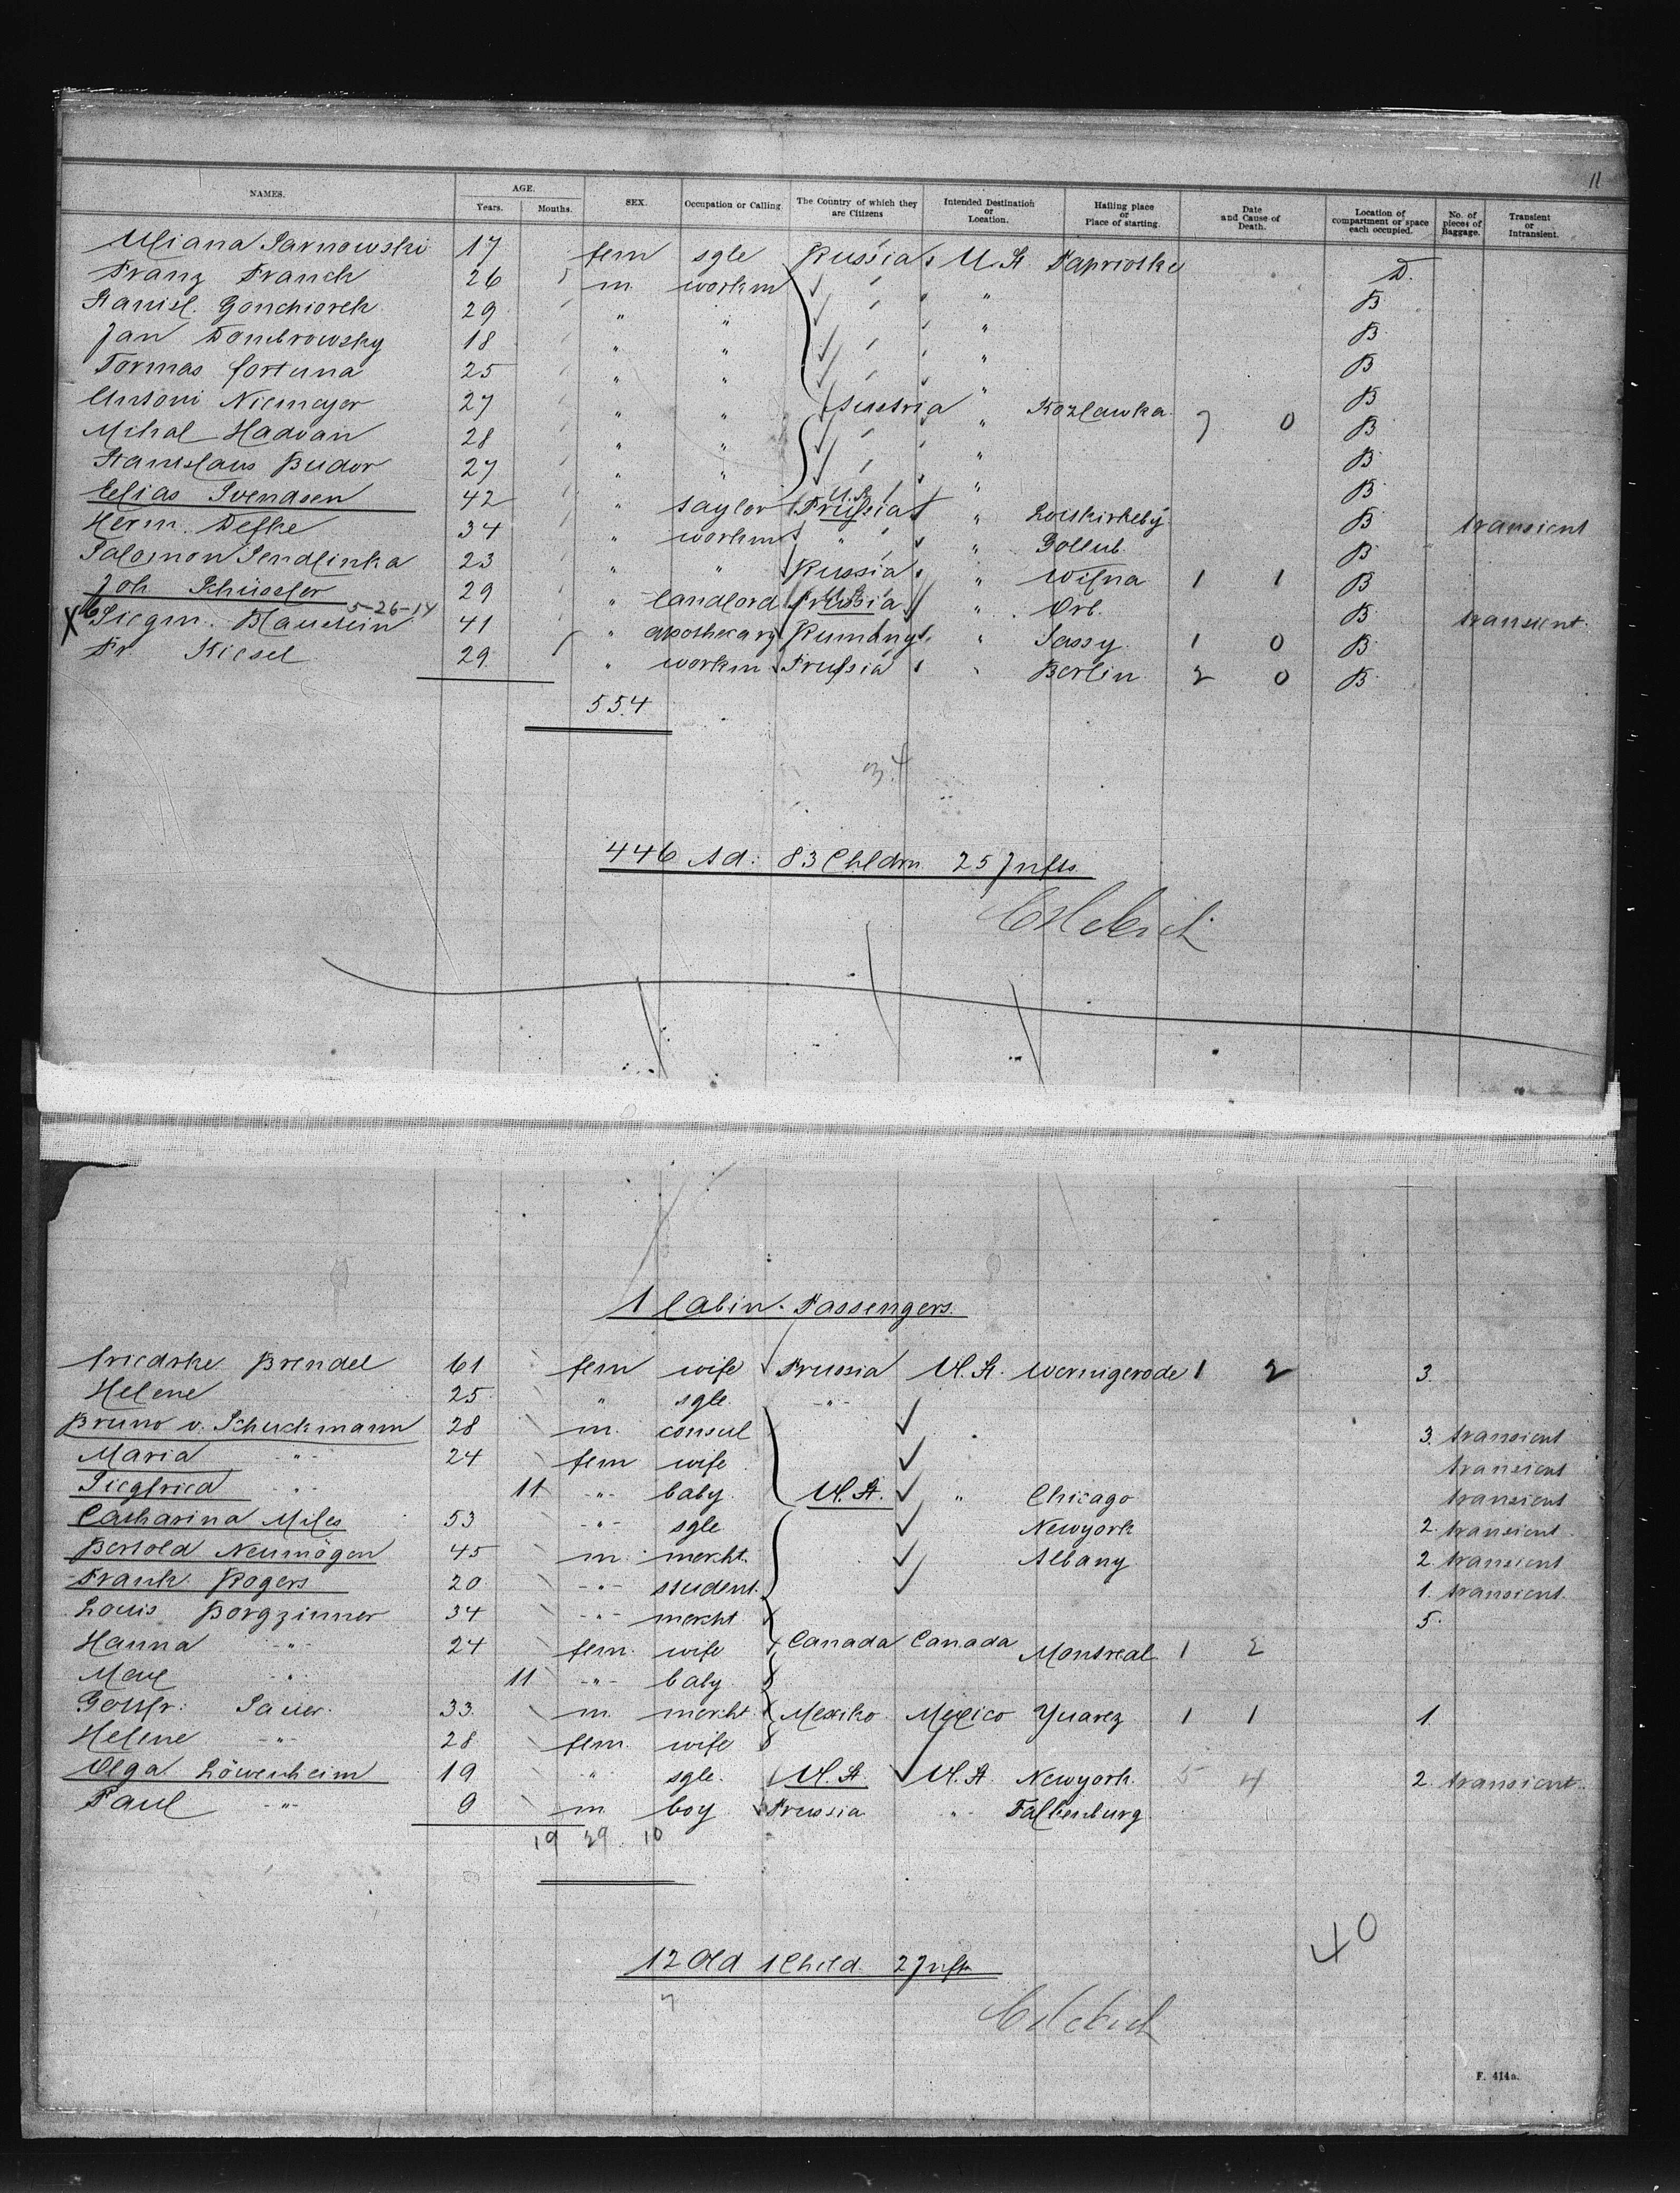 11
NAMES. AGE. Years. Months. SEX. Occupation or Calling. The Country of which they are Citizens Intended Destination or Location. Hailing place or Place of starting. Date and Cause of Death. Location of compartment or space each occupied. No. of pieces of Baggage. Transient or Intransient.
Uliana Sarnowski 17 fem sgle Russia U. St D.
Franz Franck 26 m workm " B
Stanisl. Gonchiorek 29 " " " B
Jan Dombrowsky 18 " " " B
Tormas Fortuna 25 " " " B
Antoni Niemeyer 27 " " Austria " Kozlawka 7 0 B
Mihal Hadvan 28 " " " B
Stanislaus Budor 27 " " " B
Elias Svendsen 42 " saylor U.St Prussia " B transient
Herm. Defke 34 " workm " " Gollub B
Salomon Sendlinka 23 " " Russia " Wilna 1 1 B
Joh. Schüssler 29 " landlord Prussia " Orb. B transient
X Siegm. Blaustein 5-26-14 41 " apothecary Rumäny " Jassy 1 0 B
Fr Kiesel 29 " workm Prussia " Berlin 2 0 B
554
34
446 Ad: 83 Chldrn 25 Infts.
1 Cabin. Passengers.
Friedrke Brendel 61 fem wife Prussia U. St. Wernigerode 1 2 3.
Helene 25 " sgle. -"-
Bruno v. Schuckmann 28 m. consul 3. transient
Maria -"- 24 fem wife transient
Siegfried -"- 11 -"- baby U. St. " Chicago transient
Catharina Miles 53 -"- sgle Newyork 2. transient
Bertold Neumögen 45 m mercht. Albany 2. transient
Frank Rogers 20 -"- student. 1. transient.
Louis Borgzinner 34 -"- mercht 5.
Hanna -"- 24 fem. wife Canada Canada Montreal 1 2
Max -"- 11 -"- baby
Gottfr. Sauer. 33. m. mercht Mexiko Mexico Yuarez 1 1 1.
Helene -"- 28 fem. wife
Olga Löwenheim 19 " sgle. U. St. U. St. Newyork. 5 4 2. transient.
Paul -"- 9 m boy Prussia -"- Falkenburg.
19 29 10
40
12 Old 1 Child. 2 Infts
F. 414a.